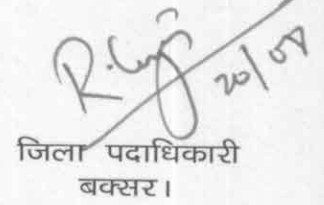 20/08
जिला पदाधिकारी
बक्सर।